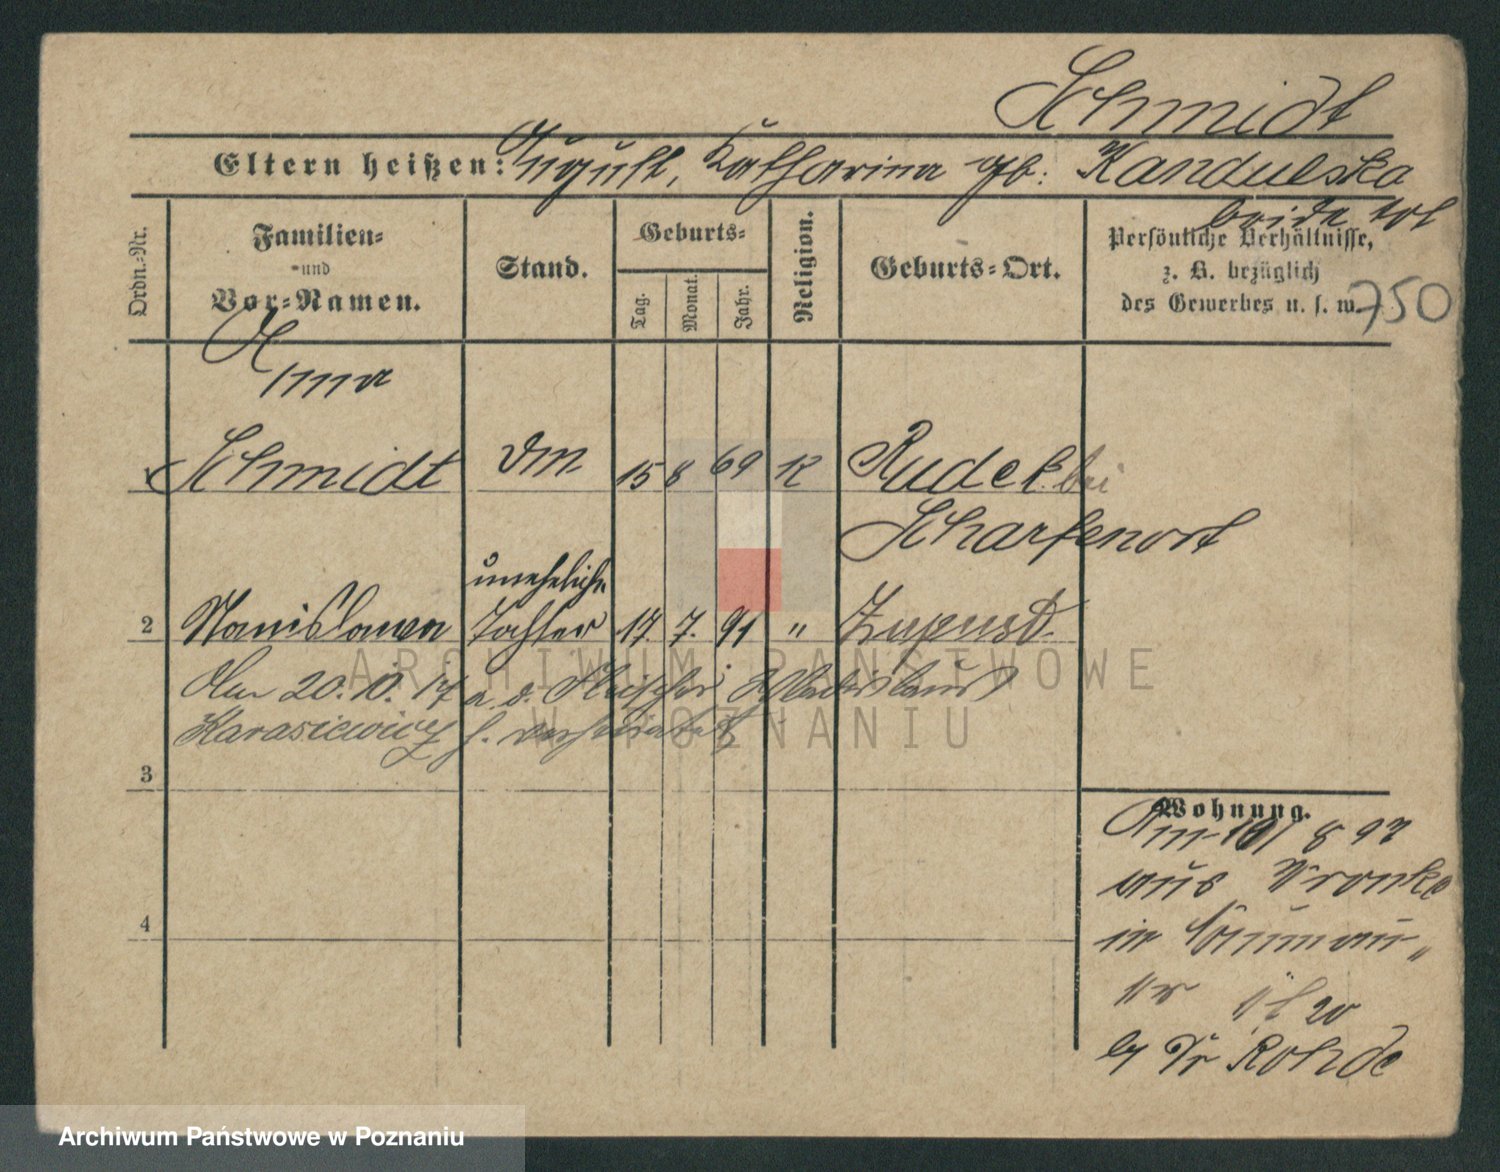 Schmidt
Eltern heißen: August, Katharina gb: Kandulska
beide tot
Ordn.-Nr.
Familien-
und
Vor-Namen.
Stand.
Geburts-
Tag.
Monat.
Jahr.
Religion.
Geburts-Ort.
Persönliche Verhältnisse,
z. B. bezüglich
des Gewerbes u. s. w.
750
Anna
Schmidt
15 8 69 K Rudek bei
Scharfenort
uneheliche
2 Stanislawa Tochter 17. 7. 91 "
Am 20. 10. 17 a. d. Fleischer Wladislaus
Karasiewicz h. verheiratet
3
Wohnung.
Am 10/ 8 97
aus Wronke
in
4
20
Rohde
ARCHIWUM PAŃSTWOWE
W POZNANIU
Archiwum Państwowe w Poznaniu